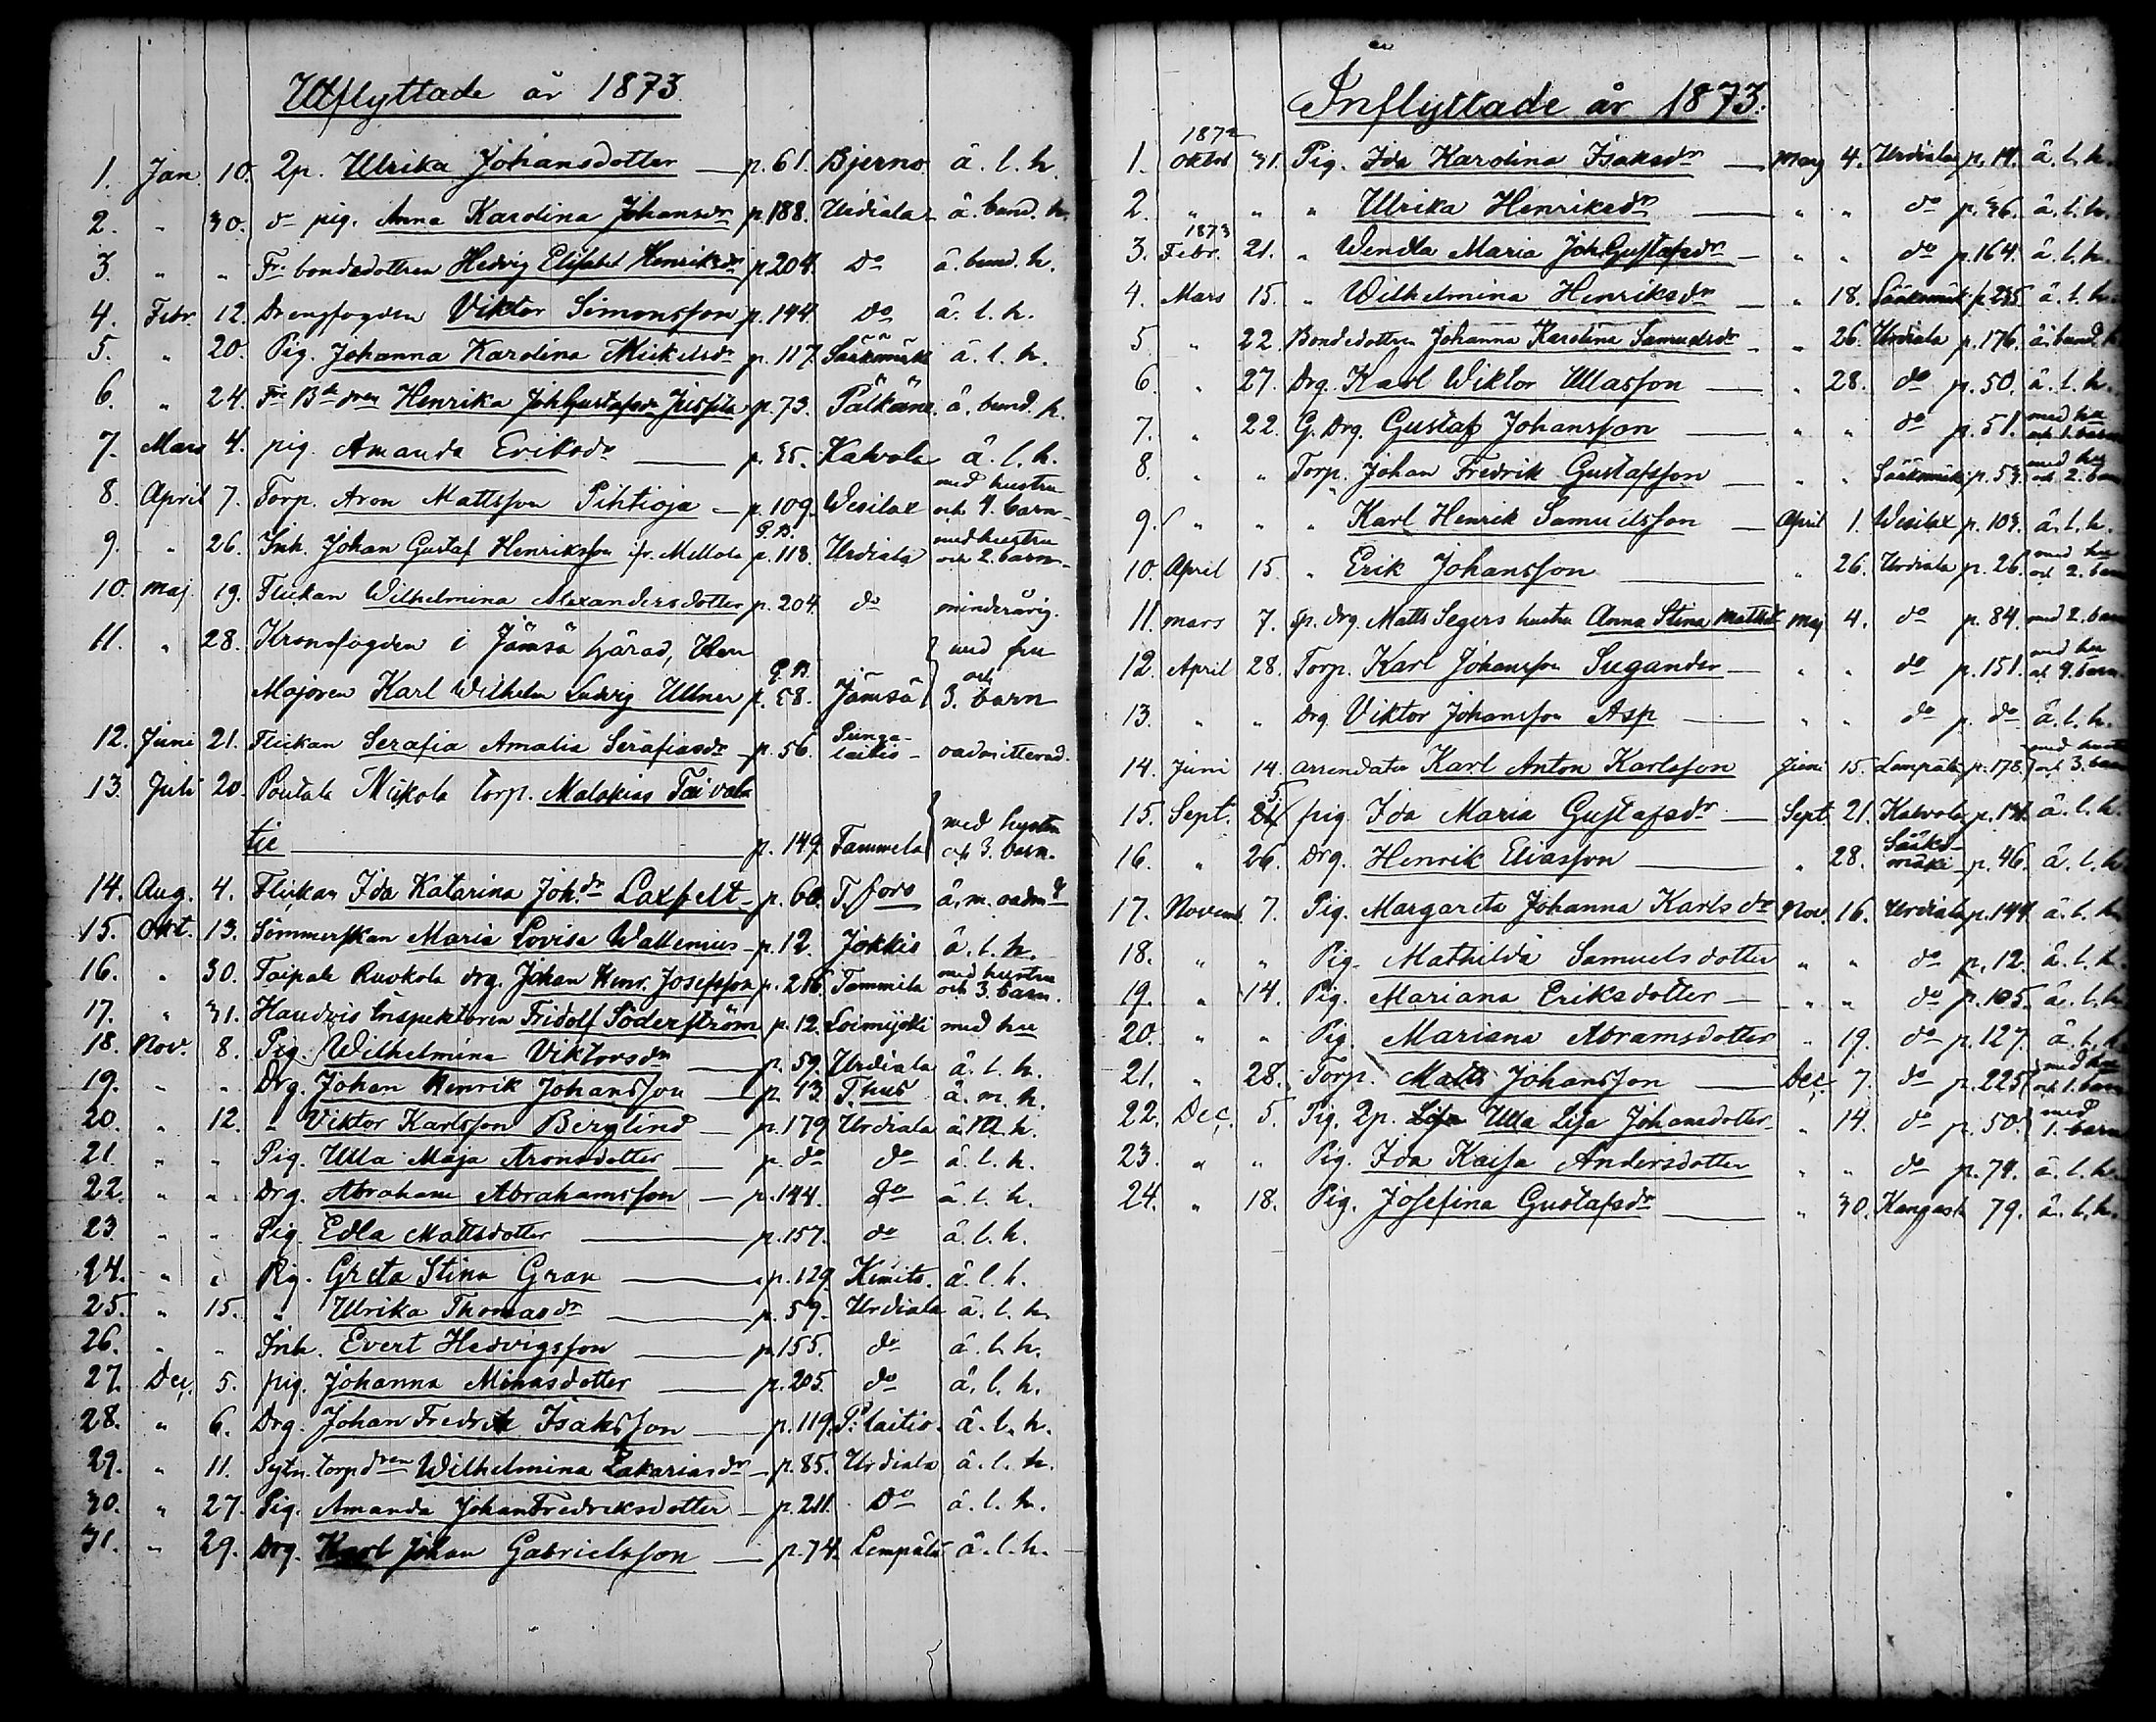 Utflyttade år 1873.
1. Jan. 10. 2p. Ulrika Johansdotter — p. 61. Bjerno â. l. h.
2. " 30. do pig. Anna Karolina Johansdr p. 188. Urdiala â. bund. h.
3. " " Fr. bondedottren Hedvig Elisabet Henriksdr p. 204. Do â. bund. h.
4. Febr. 12. Drengfogden Viktor Simonsson p. 144. Do â. l. h.
5. " 20. Pig. Johanna Karolina Mickelsdr p. 117. Sääksmäki â. l. h.
6. " 24. Henrika Joh Gustafsdr p. 73. Pälkäne â. bund. h.
7. Mars 4. pig. Amanda Eriksdr — p. 35. Kalvola â. l. h.
8. April 7. Torp. Aron Mattsson Pihtioja — p. 109. Wesilax med hustru och 4. barn
9. " 26. Inh. Johan Gustaf Henriksson fr. Mellola P.B. p. 118. Urdiala med hustru och 2. barn
10. Maj 19. Flickan Wilhelmina Alexandersdotter p. 204. do minderårig.
11. " 28. Kronofogden i Jämsä härad, Herr med fru
Majoren Karl Wilhelm Ludvig Ullner P.B. p. 58. Jämsä och 3. barn
12. Juni 21. Flickan Serafia Amalia Serafiasdr — p. 56. Punga-laitis — oadmitterad.
13. Juli 20. Poutala Mikola torp. Malakias Taivala
tie — p. 149. Tammela med hustru och 3. barn.
14. Aug. 4. Flickan Ida Katarina Joh.dr Laxfelt — p. 60. T.fors â. m. oadmd
15. Okt. 13. Sömmerskan Maria Lovisa Wallenius — p. 12. Jokkis â. l. h.
16. " 30. Taipale Ruokola drg. Johan Henr. Josefsson p. 216. Tammela med hustru och 3. barn.
17. " 31. Handvis Inspektoren Fridolf Söderström p. 12. Loimijoki med hu
18. Nov. 8. Pig. Wilhelmina Viktorsdr — p. 59. Urdiala â. l. h.
19. " " Drg. Johan Henrik Johansson — p. 43. T.hus â. m. h.
20. " 12. " Viktor Karlsson Berglind — p. 179 Urdiala â. l. h.
21. " " Pig. Ulla Maja Aronsdotter — p. do do â. l. h.
22. " " Drg. Abraham Abrahamsson — p. 144. do â. l. h.
23. " " Pig. Edla Mattsdotter — p. 157. do â. l. h.
24. " " Pig. Greta Stina Gran — p. 129. Kimito. â. l. h.
25. " 15. " Ulrika Thomasdr — p. 59. Urdiala â. l. h.
26. " " Inh. Evert Hedvigsson — p. 155. do â. l. h.
27. Dec. 5. pig. Johanna Monasdotter — p. 205. do â. l. h.
28. " 6. Drg. Johan Fredrik Isaksson — p. 119. P:laitio. â. l. h.
29. " 11. Sytn. torpdren Wilhelmina Zakariasdr — p. 85. Urdiala â. l. h.
30. " 27. Pig. Amanda JohanFredriksdotter — p. 211. Do â. l. h.
31. " 29. Drg. Karl Johan Gabrielsson — p. 74. Lempälä â. l. h.
Inflyttade år 1873.
1872
1. Oktob 31. Pig. Ida Karolina Isaksdr — Maj 4. Urdiala p. 14. â. l. h.
2. " " " Ulrika Henriksdr — " " do p. 36. â. l. h.
1873
3. Febr. 21. " Wendla Maria Joh.Gustafsdr — " " do p. 164. â. l. h.
4. Mars 15. " Wilhelmina Henriksdr — " 18. Sääksmäki p. 235. â. l. h.
5. " 22. Bondedottren Johanna Karolina Samuelsdr — " 26. Urdiala p. 176. â. bund. h
6. " 27. Drg. Karl Wiktor Ullasson — " 28. do p. 50. â. l. h.
7. " 22. G. Drg. Gustaf Johansson — " " do p. 51. med hu och 1. barn
8. " " Torp. Johan Fredrik Gustafsson — " " Sääksmäki p. 53. med hu och 2. barn
9. " " " Karl Henrik Samuelsson — April 1. Wesilax p. 103. â. l. h.
10. April 15. " Erik Johansson — " 26. Urdiala p. 26. med hu och 2. barn
11. Mars 7. sp. drg. Matts Segers hustru Anna Stina Mattsdr Maj 4. do p. 84. med 2. barn
12. April 28. Torp. Karl Johansson Sugander — " " do p. 151. med hu och 4. barn
13. " " Drg. Viktor Johansson Asp — " " do p. do â. l. h.
14. Juni 14. arrendator Karl Anton Karlsson Juni 15. Lempälä p. 178. med hustru och 3. barn
15. Sept. 5 pig. Ida Maria Gustafsdr — Sept. 21. Kalvola p. 174. â. l. h.
16. " 26. Drg. Henrik Eliasson — " 28. Sääks-mäki p. 46. â. l. h
17. Novemb. 7. Pig. Margareta Johanna Karlsdr Nov. 16. Urdiala p. 144. â. l. h.
18. " " Pig. Mathilda Samuelsdotter " " do p. 12. â. l. h.
19. " 14. Pig. Mariana Eriksdotter — " " do p. 105. â. l. h
20. " " Pig. Mariana Abramsdotter " 19. do p. 127. â. l. h
21. " 28. Torp. Matts Johansson — Dec. 7. do p. 225 med hu och 1. barn
22. Dec. 5. Pig. 2p. Ulla Lisa Johansdotter " 14. do p. 50. med 1. barn
23. " " Pig. Ida Kaisa Andersdotter " " do p. 74. â. l. h.
24. " 18. Pig. Josefina Gustafsdr — " 30. Kangasa 79. â. l. h.